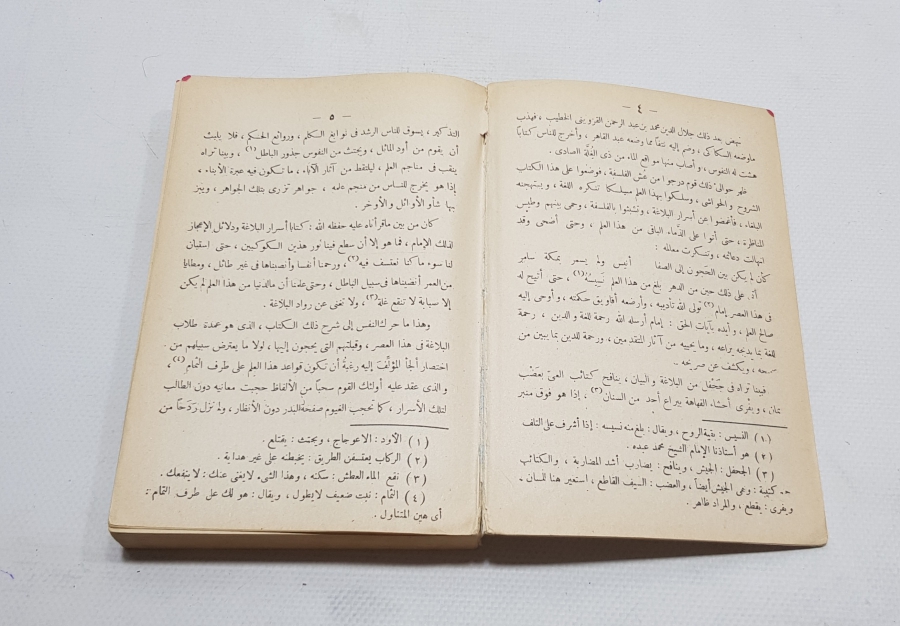 — ٤ —
نهض بعد ذلك جلال الدين محمد بن عبد الرحمن القزوينى الخطيب ، فهذب
ماوضعه السكاكى ، وضم إليه نتفا مما وضعه عبد القاهر ، وأخرج للناس كتابا
هشت له النفوس ، وأصاب منها مواقع الماء من ذى الغُلَّة الصادى .
ظهر حوالى ذلك قوم درجوا من عُش الفلسفة ، فوضعوا على هذا الكتاب
الشروح والحواشى ، وسلكوا بهذا العلم مسلكا تنكره اللغة ، ويستهجنه
البلغاء ، فأغمضوا عن أسرار البلاغة ، وتشبثوا بالفلسفة ، وحمى بينهم وطيس
المناظرة ، حتى أتوا على الذَّماء الباقى من هذا العلم ، وحتى أضحى وقد
انهالت دعائمه ، وتنكرت معالمه :
كأن لم يكن بين الحَجون إلى الصفا أنيس ولم يسمر بمكة سامر
أتى على ذلك حين من الدهر بلغ من هذا العلم نَسِيسُه(١) ، حتى أتيح له
فى هذا العصر إمام(٢) تولى الله تأديبه ، وأرضعه أفاويق حكمته ، وأوحى إليه
صالح العلم ، وأيده بآيات الحق : إمام أرسله الله رحمة للغة والدين ، رحمة
للغة بما يدبجه يراعه ، وما يحييه من آثار المتقدمين ، ورحمة للدين بما يبين من
سمحه ، ويكشف عن صريحه .
فبينا تراه فى جَحْفل من البلاغة والبيان ، ينافح كتائب العىّ بعَضْب
يمان ، ويفْرى أحشاء الفهاهة بيراع أحد من السنان(٣) ، إذا هو فوق منبر
(١) النسيس : بقية الروح ، ويقال : بلغ منه نسيسه : إذا أشرف على التلف
(٢) هو أستاذنا الإمام الشيخ محمد عبده .
(٣) الجحفل : الجيش ، وينافح : يضارب أشد المضاربة ، والكتائب
جـ كتيبة : وهى الجيش أيضاً ، والعضب : السيف القاطع ، استعير هنا للسان .
ويفرى : يقطع ، والمراد ظاهر .
— ٥ —
التذكير ، يسوق للناس الرشد فى نوابغ الكلم ، وروائع الحكم ، فلا يلبث
أن يقوم من أود المائل ، ويجتث من النفوس جذور الباطل(١) ، وبينا تراه
ينقب فى مناجم العلم ، ليلتقط من آثار الآباء ، ما تكون فيه عبرة الأبناء ،
إذا هو يخرج للناس من منجم علمه ، جواهر تزرى بتلك الجواهر ، ويبز
بها شأو الأوائل والأواخر .
كان من بين ماقرأناه عليه حفظه الله : كتابا أسرار البلاغة ودلائل الإعجاز
لذلك الإمام ، فما هو إلا أن سطع فينا نور هذين الكوكبين ، حتى استبان
لنا سوء ما كنا نعتسف فيه(٢) ، ورحمنا أنفسا وأنصبناها فى غير طائل ، ومطايا
من العمر أنضيناها فى سبيل الباطل ، وحتى علمنا أن مالدينا من هذا العلم لم يكن
إلا صبابة لا تنقع غلة(٣) ، ولا تغنى عن رواد البلاغة .
وهذا ما حرك النفس إلى شرح ذلك الكتاب ، الذى هو عمدة طلاب
البلاغة فى هذا العصر ، وقبلتهم التى يحجون إليها ، لولا ما يعترض سبيلهم من
اختصار ألجأ المؤلِّفَ إليه رغبةُ أن تكون قواعد هذا العلم على طرف الثُّمام(٤) ،
والذى عقد عليه أولئك القوم سحبا من الألفاظ حجبت معانيه دون الطالب
لتلك الأسرار ، كما تحجب الغيوم صفحة البدر دون الأنظار ، ولم نزل رَدَحًا من
(١) الأود : الاعوجاج ، ويجتث : يقتلع .
(٢) الركاب يعتسفن الطريق : يخبطنه على غير هداية .
(٣) نقع الماء العطش : سكنه ، وهذا الشىء لايغنى عنك : لاينفعك .
(٤) الثمام : نبت ضعيف لايطول ، ويقال : هو لك على طرف الثمام :
أى هين المتناول .